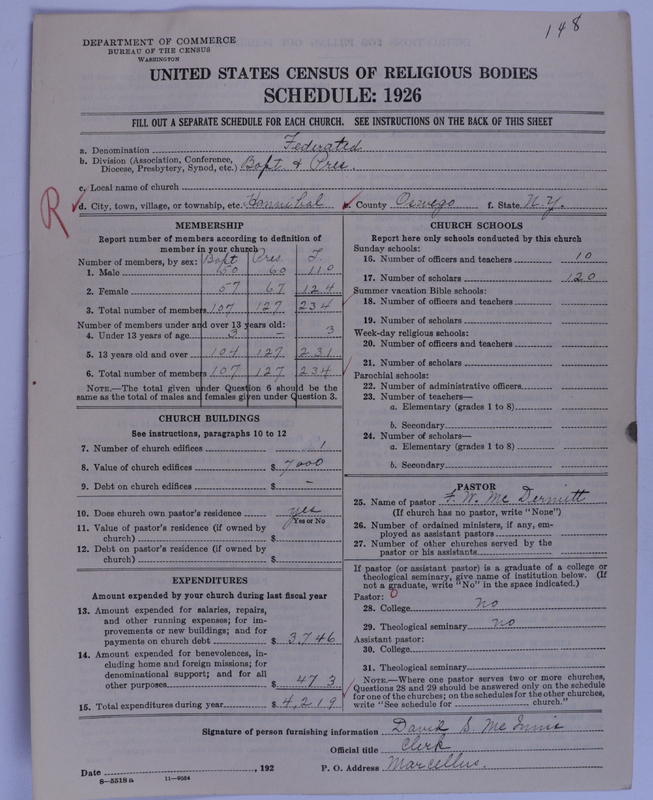 148
DEPARTMENT OF COMMERCE
BUREAU OF THE CENSUS
WASHINGTON
UNITED STATES CENSUS OF RELIGIOUS BODIES
SCHEDULE: 1926
FILL OUT A SEPARATE SCHEDULE FOR EACH CHURCH. SEE INSTRUCTIONS ON THE BACK OF THIS SHEET
a. Denomination Federated
b. Division (Association, Conference, Diocese, Presbytery, Synod, etc.) Bapt & Pres.
c. Local name of church
R
d. City, town, village, or township, etc. Hannibal e. County Oswego f. State N.Y.
MEMBERSHIP
Report number of members according to definition of
member in your church
Number of members, by sex: Bapt Pres. T.
1. Male 50 60 110
2. Female 57 67 124
3. Total number of members 107 127 234
Number of members under and over 13 years old:
4. Under 13 years of age 3 – 3
5. 13 years old and over 104 127 231
6. Total number of members 107 127 234
NOTE.—The total given under Question 6 should be the
same as the total of males and females given under Question 3.
CHURCH BUILDINGS
See instructions, paragraphs 10 to 12
7. Number of church edifices 1
8. Value of church edifices $ 7000
9. Debt on church edifices $ –
10. Does church own pastor's residence yes
Yes or No
11. Value of pastor's residence (if owned by
church) $
12. Debt on pastor's residence (if owned by
church) $
EXPENDITURES
Amount expended by your church during last fiscal year
13. Amount expended for salaries, repairs,
and other running expenses; for im-
provements or new buildings; and for
payments on church debt $ 3,746
14. Amount expended for benevolences, in-
cluding home and foreign missions; for
denominational support; and for all
other purposes $ 473
15. Total expenditures during year $ 4,219
CHURCH SCHOOLS
Report here only schools conducted by this church
Sunday schools:
16. Number of officers and teachers 10
17. Number of scholars 120
Summer vacation Bible schools:
18. Number of officers and teachers
19. Number of scholars
Week-day religious schools:
20. Number of officers and teachers
21. Number of scholars
Parochial schools:
22. Number of administrative officers
23. Number of teachers—
a. Elementary (grades 1 to 8)
b. Secondary
24. Number of scholars—
a. Elementary (grades 1 to 8)
b. Secondary
PASTOR
25. Name of pastor F. W. Mc Dermitt
(If church has no pastor, write "None")
26. Number of ordained ministers, if any, em-
ployed as assistant pastors
27. Number of other churches served by the
pastor or his assistants
If pastor (or assistant pastor) is a graduate of a college or
theological seminary, give name of institution below. (If
not a graduate, write "No" in the space indicated.)
Pastor: 0
28. College no
29. Theological seminary no
Assistant pastor:
30. College
31. Theological seminary
NOTE.—Where one pastor serves two or more churches,
Questions 28 and 29 should be answered only on the schedule
for one of the churches; on the schedules for the other churches,
write "See schedule for church."
Signature of person furnishing information David S. Mc Innis
Official title Clerk
Date , 192 P. O. Address Marcellus.
8—5518 a 11—9054